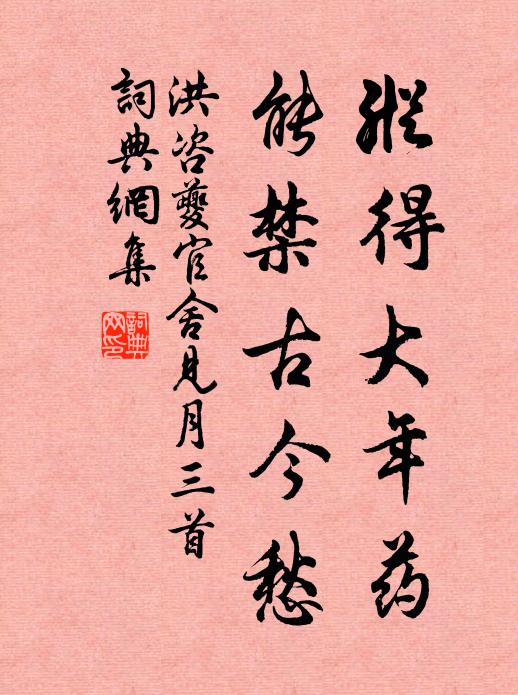 縱得大年药
能禁古今愁
洪咨夔官舍見月三首
詞典網集
詞典網印